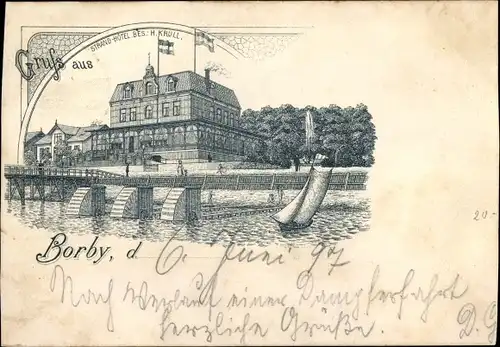 Gruss aus
STRAND-HÔTEL BES: H. KRULL.
Borby, d. 6. Juni 97
Nach Verlauf einer Dampferfahrt
herzliche Grüße. D. G
20.-